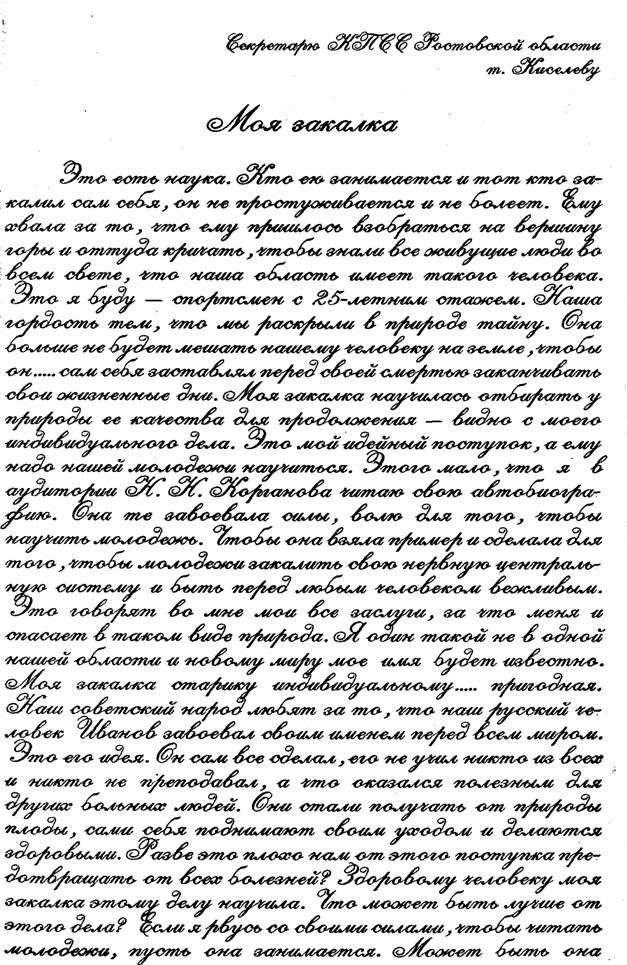 Секретарю КПСС Ростовской области
т. Киселеву
Моя закалка
Это есть наука. Кто ею занимается и тот кто за-
калил сам себя, он не простуживается и не болеет. Ему
хвала за то, что ему пришлось взобраться на вершину
горы и оттуда кричать, чтобы знали все живущие люди во
всем свете, что наша область имеет такого человека.
Это я буду — спортсмен с 25-летним стажем. Наша
гордость тем, что мы раскрыли в природе тайну. Она
больше не будет мешать нашему человеку на земле, чтобы
он..... сам себя заставлял перед своей смертью заканчивать
свои жизненные дни. Моя закалка научилась отбирать у
природы ее качества для продолжения — видно с моего
индивидуального дела. Это мой идейный поступок, а ему
надо нашей молодежи научиться. Этого мало, что я в
аудитории Н. Н. Корганова читаю свою автобиогра-
фию. Она те завоевала силы, волю для того, чтобы
научить молодежь. Чтобы она взяла пример и сделала для
того, чтобы молодежи закалить свою нервную централь-
ную систему и быть перед любым человеком вежливым.
Это говорят во мне мои все заслуги, за что меня и
спасает в таком виде природа. Я один такой не в одной
нашей области и новому миру мое имя будет известно.
Моя закалка старику индивидуальному..... пригодная.
Наш советский народ любят за то, что наш русский че-
ловек Иванов завоевал своим именем перед всем миром.
Это его идея. Он сам все сделал, его не учил никто из всех
и никто не преподавал, а что оказался полезным для
других больных людей. Они стали получать от природы
плоды, сами себя поднимают своим уходом и делаются
здоровыми. Разве это плохо нам от этого поступка пре-
дотвращать от всех болезней? Здоровому человеку моя
закалка этому делу научила. Что может быть лучше от
этого дела? Если я рвусь со своими силами, чтобы читать
молодежи, пусть она занимается. Может быть она